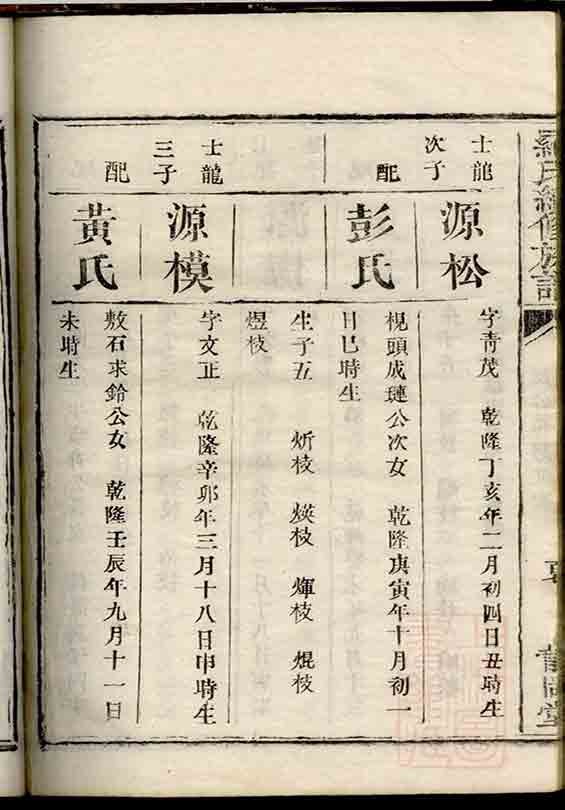 羅氏續修族譜
士龍次子
源松
字青茂 乾隆丁亥年二月初四日丑時生
配
彭氏
梘頭成璉公次女 乾隆庚寅年十月初一
日巳時生
生子五 炘枝 煐枝 煇枝 焜枝
煜枝
士龍三子
源模
字文正 乾隆辛卯年三月十八日申時生
配
黃氏
敷石求鈴公女 乾隆壬辰年九月十一日
未時生